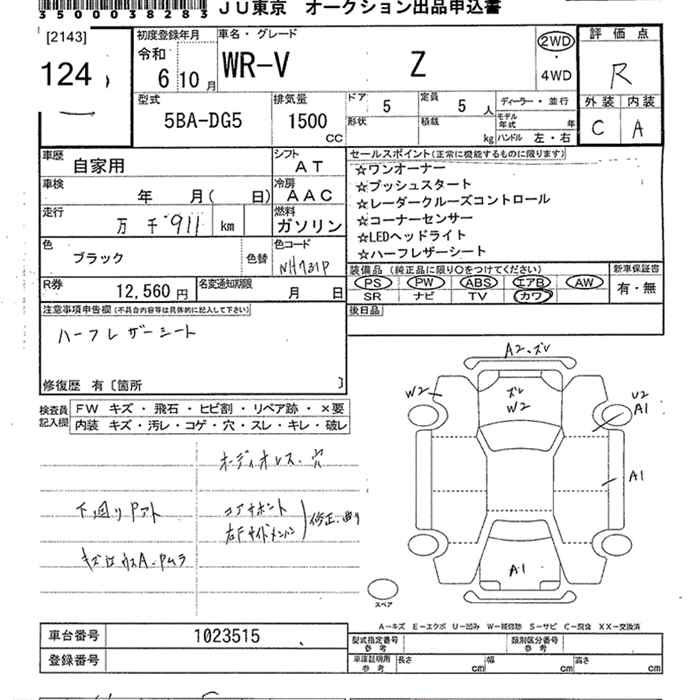 35000038283 JU東京 オークション出品申込書
[2143]
124
初度登録年月
令和
6 10 月
車名・グレード
WR-V Z
2WD
・
4WD
評価点
R
外装 内装
C A
型式
5BA-DG5
排気量
1500
CC
ドア 5
定員 5 人
形状
積載 kg
ディーラー・並行
モデル年式 年
ハンドル 左・右
車歴
自家用
シフト
AT
車検
年 月( 日)
冷房
AAC
走行
万 千 911 km
燃料
ガソリン
色
ブラック
色替
色コード
NH731P
R券
12,560 円
名変通知期限
月 日
セールスポイント(正常に機能するものに限ります)
☆ワンオーナー
☆プッシュスタート
☆レーダークルーズコントロール
☆コーナーセンサー
☆LEDヘッドライト
☆ハーフレザーシート
装備品 (純正品に限り○をつけてください)
PS PW ABS エアB AW
SR ナビ TV カワ
新車保証書
有・無
後日品
注意事項申告欄(不具合内容等は具体的に記入して下さい)
ハーフレザーシート
修復歴 有〔箇所 〕
検査員記入欄
FW キズ・飛石・ヒビ割・リペア跡・×要
内装 キズ・汚レ・コゲ・穴・スレ・キレ・破レ
オーディオレス.穴
下廻りPアト
コアサポート
右Fサイドメンバー
修正.曲り
A2.ズレ
W2
ズレ
W2
U2
A1
A1
A1
スペア
A−キズ E−エクボ U−凹み W−補修跡 S−サビ C−腐食 XX−交換済
車台番号 1023515
登録番号
型式指定番号
参考
類別区分番号
参考
車庫証明用
参考
長さ cm
幅 cm
高さ cm